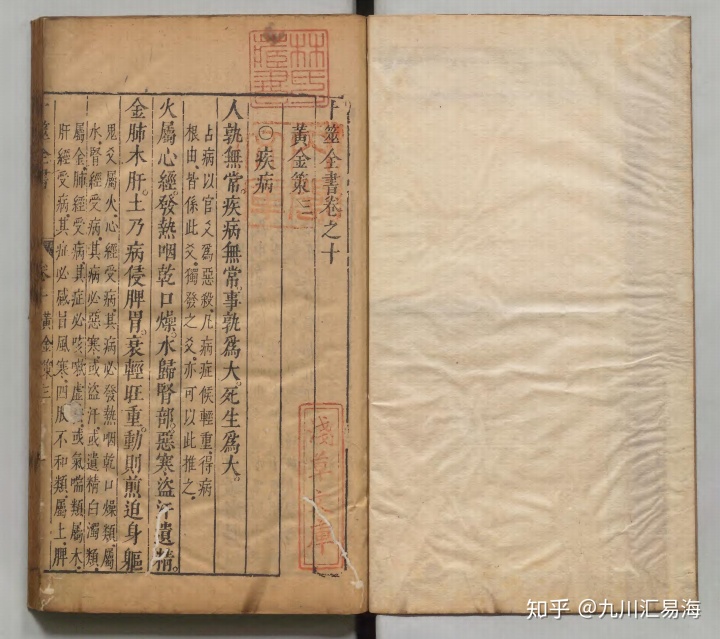 卜筮全書卷之十
黃金策三
○疾病
人孰無常疾病無常。事孰為大。死生為大。
占病以官爻為惡殺。凡病症候輕重。得病
根由。皆係此爻。獨發之爻。亦可以此推之。
火屬心經。發熱咽乾口燥。水歸腎部。惡寒盜汗遺精。
金肺木肝。土乃病侵脾胃。衰輕旺重。動則煎迫身軀
鬼爻屬火。心經受病。其病必發熱咽乾口燥類。屬
水。腎經受病。其病必惡寒或盜汗。或遺精白濁類。
屬金。肺經受病。其症必咳嗽虛或氣喘類。屬木。
肝經受病。其症必感冒風寒。四肢不和類。屬土。脾
筮全書
黃金策三
林氏藏書
淺草文庫
知乎 @九川汇易海